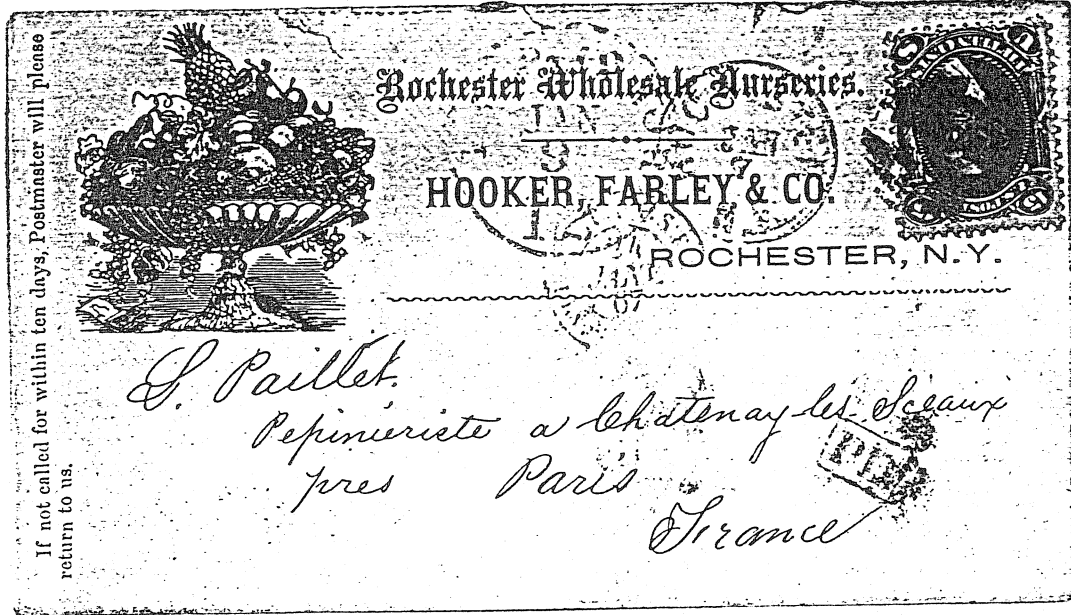 If not called for within ten days, Postmaster will please
return to us.
Rochester Wholesale Nurseries.
HOOKER, FARLEY & CO.
ROCHESTER, N.Y.
L. Paillet.
Pepinieriste a Chatenay les Sceaux
pres Paris
France